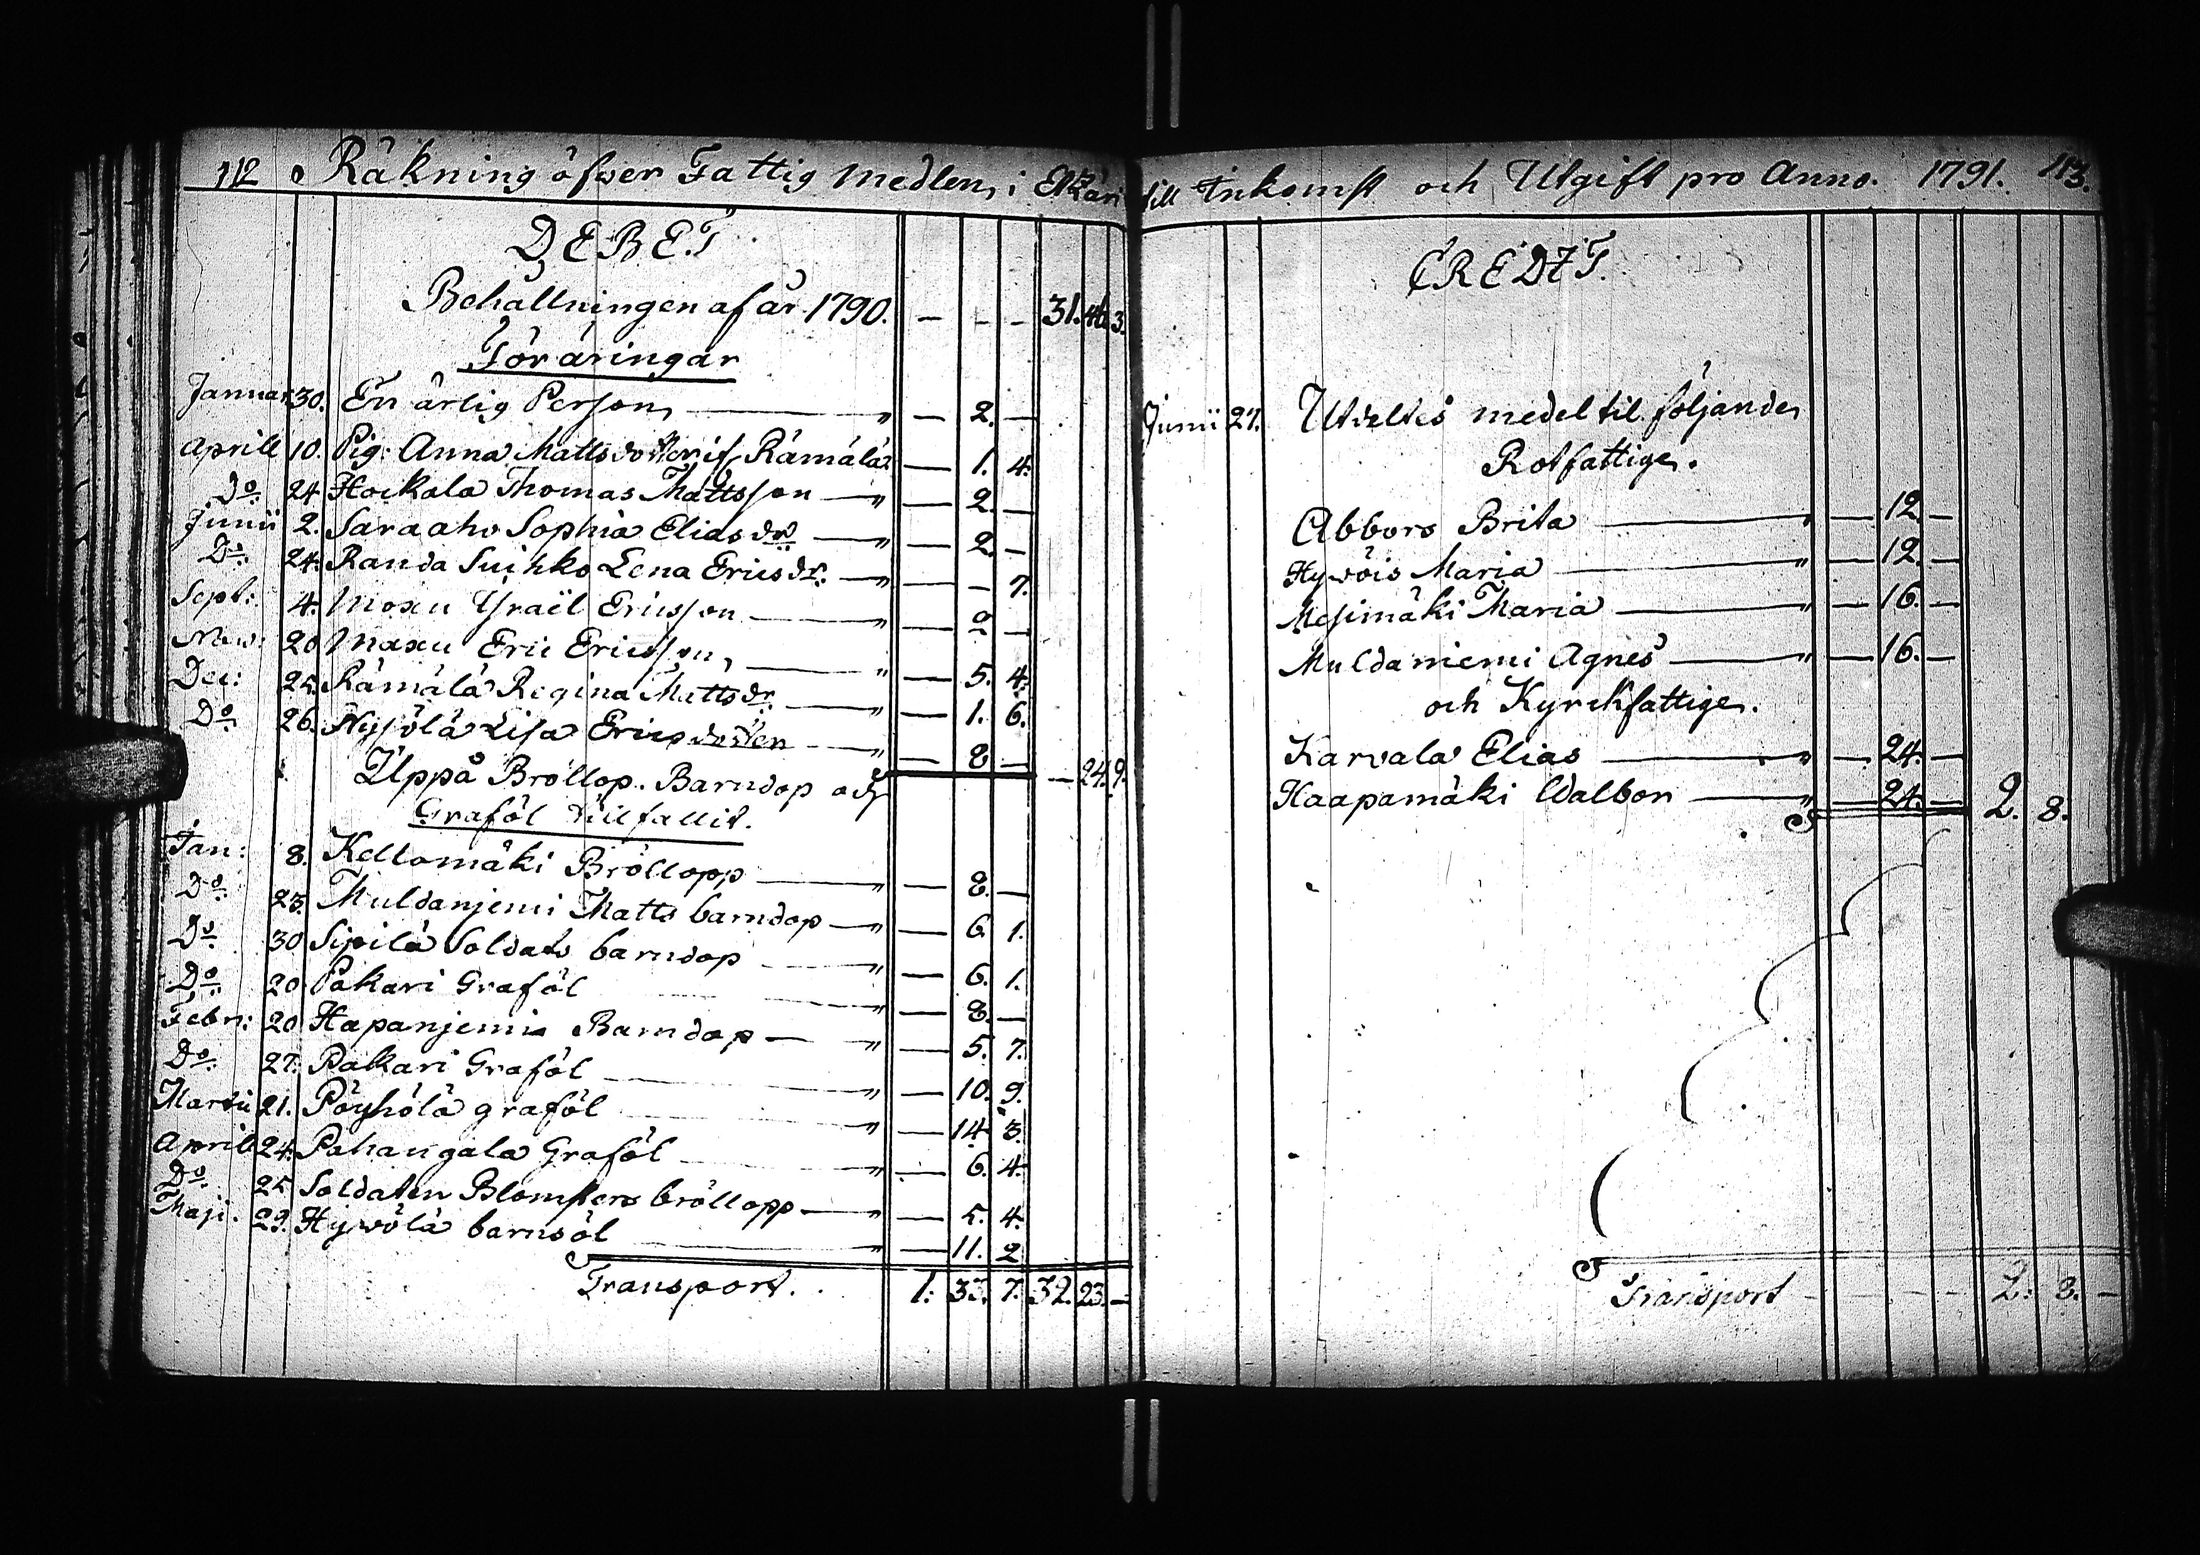 112 Räkning öfwer Fattig Medlen i Etzäri
DEBET
Behållningen af år 1790. — — — 31. 46. 3.
Föräringar
Januar 30. En ärlig Person — " — 2. —
Aprill 10. Pig: Anna Mattsdotter if Rämälä — 1. 4.
Do 24 Hoikala Thomas Mattsson — " — 2. —
Junii 2. Saraaho Sophia Eliasdr — " — 2. —
Do 24. Randa Suihko Lena Ericsdr. — " — — 7.
Sept: 4. Moxu Israël Ericsson — " — 2 —
Now: 20 Maxu Eric Ericsson — " — 5. 4.
Dec: 25. Rämälä Regina Mattsdr. — " — 1. 6.
Do 26. Nysölä Lisa Ericsdotter — " — 8 —
Uppå Bröllop. Barndop och — 24. 9.
Graföl tillfallit.
Jan: 8. Kellomäki Bröllopp — " — 8. —
Do 23. Muldanjemi Matts barndop — " — 6 1.
Do 30 Sipilä Soldats barndop — " — 6. 1.
Do 20 Pakari Graföl — " — 8. —
Febr: 20 Hapanjemi Barndop — " — 5. 7.
Do 27. Pakari Graföl — " — 10. 9.
Martii 21. Pöyhölä graföl — " — 14 3.
April 24. Pahangala Graföl — " — 6. 4.
Do 25 Soldaten Blomsters bröllopp — " — 5. 4.
Maji. 29. Hywölä barnsöl — " — 11. 2
Transport. 1. 33. 7. 32. 23. —
till Inkomst och Utgift pro Anno. 1791. 113.
CREDIT.
Junii 27. Utdeltes medel til följande
Rotfattige.
Abbors Brita — " — 12 —
Hywöis Maria — " — 12. —
Mesimäki Maria — " — 16. —
Muldaniemi Agnes — " — 16. —
och Kyrckfattige.
Karvala Elias — " — 24. —
Haapamäki Walbor — " — 24. — 2. 8.
Transport — — — — 2. 8. —